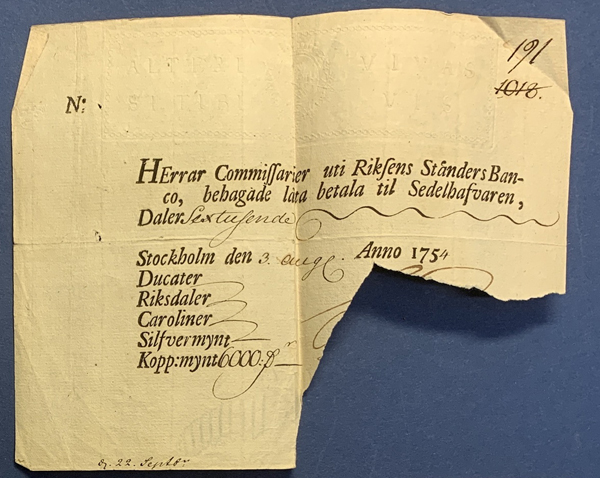 191
1018.
N:
HErrar Commiſſarier uti Rikſens Ständers Ban-
co, behagade låta betala til Sedelhafvaren,
Daler Sextusende
Stockholm den 3. aug. Anno 1754
Ducater
Riksdaler
Caroliner
Silfvermynt
Kopp:mynt 6000:
d. 22. Septbr